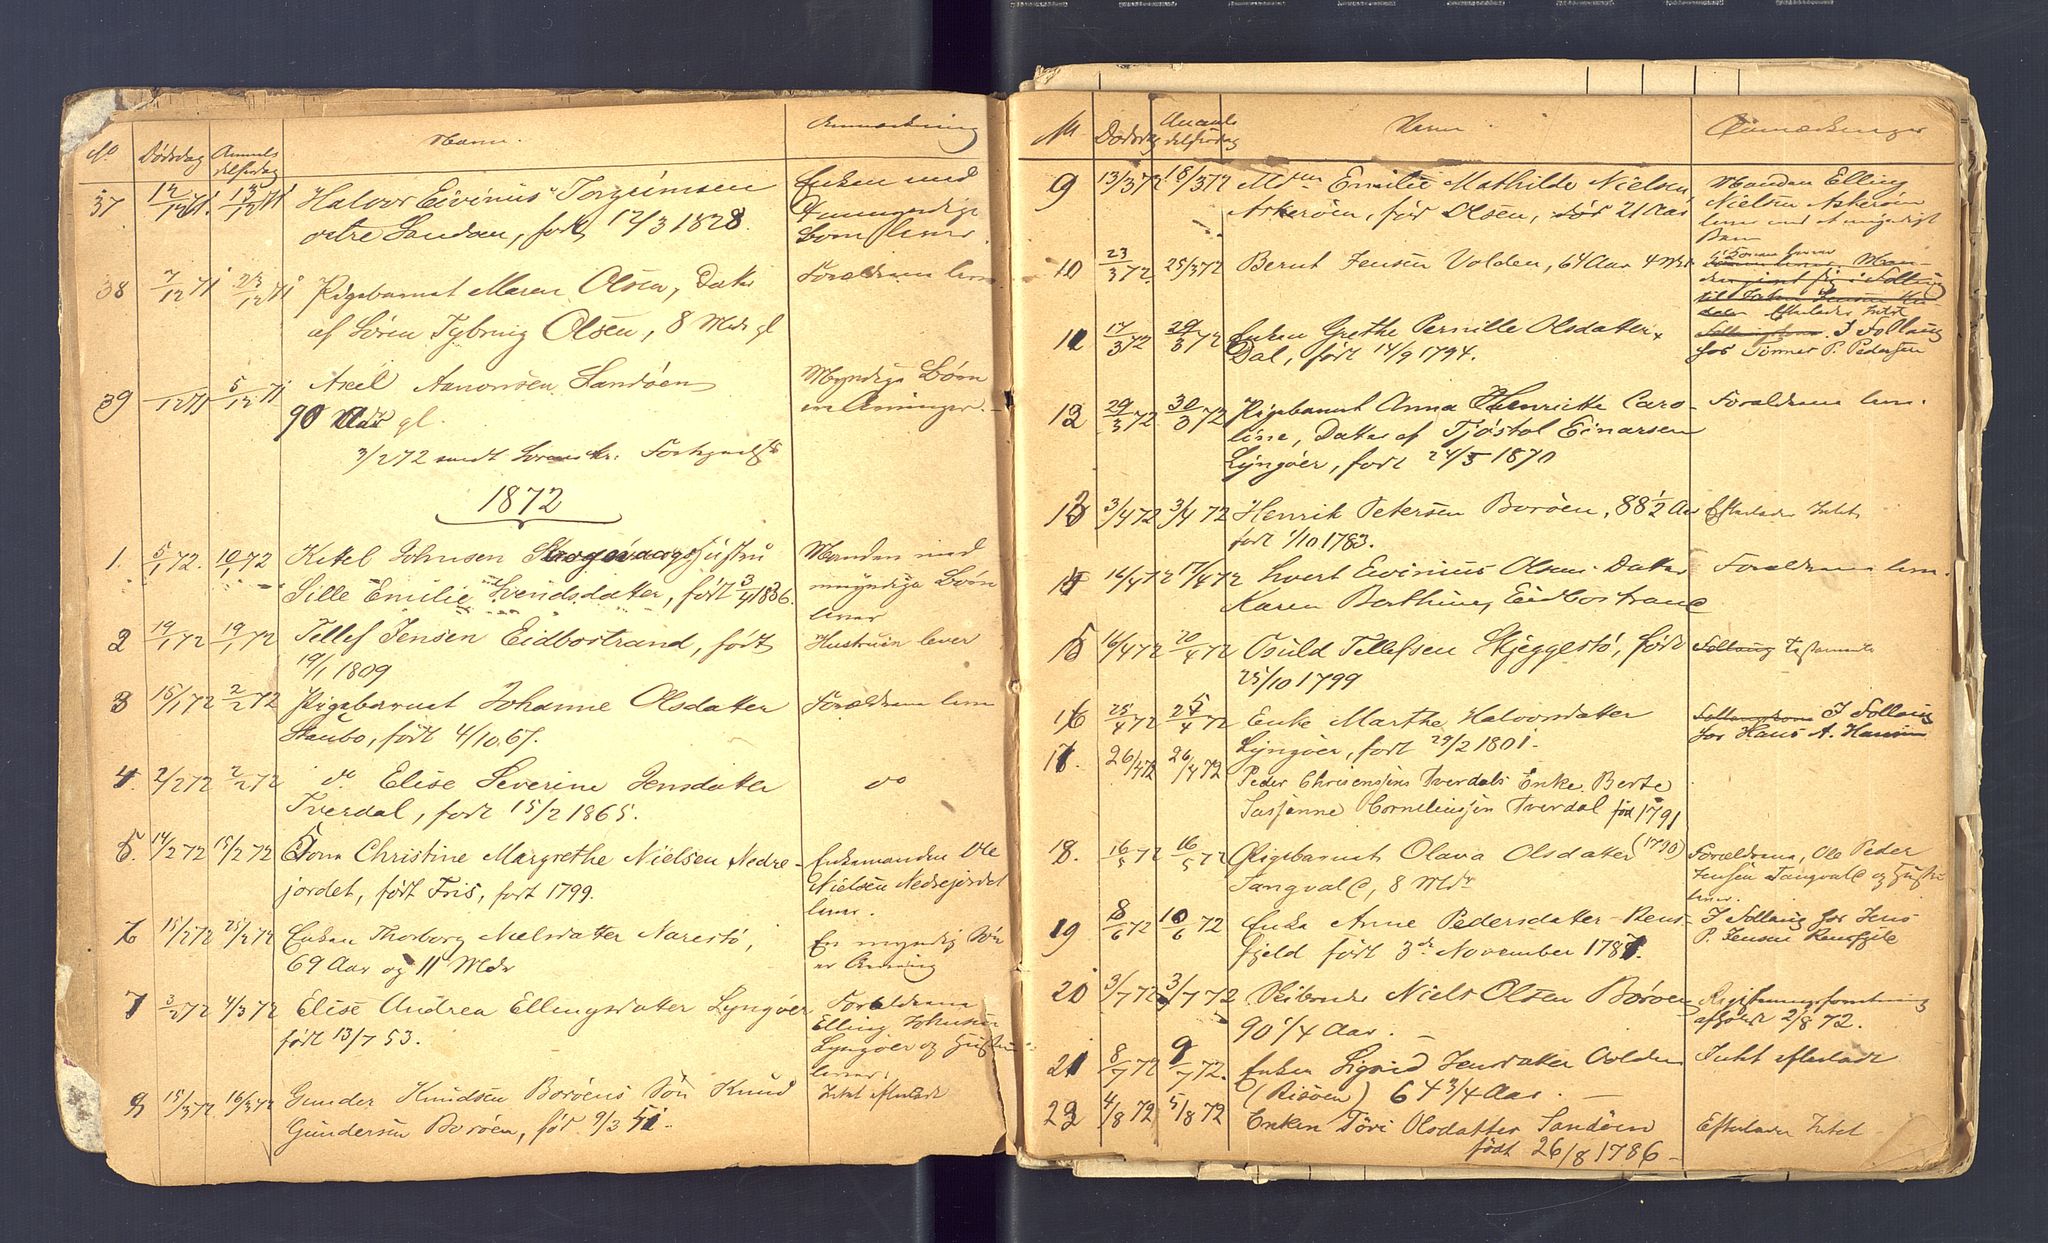 No Dødsdag Anmeldelsesdag Navn. Anmærkning
37 12/12 71. 13/12 71 Halvor Eivinius Torgrimsen Enken med
østre Sandøen, født 12/3 1828. Umyndige
Børn lever.
38 7/12 71 23/12 71 Pigebarnet Maren Olsen, Datter Forældrene lever
af Søren Tybring Olsen, 8 Mdr gl
39 /12 71 5/12 71 Axel Aanonsen Sandøen Myndige Børn
90 Aar gl. ere Arvinger.
3/2 72 sendt Sorenskr. Fortegnelse
1872
1. 5/1 72. 10/1 72 Kitel Johnsen Hustru Manden med
Sille Emilie Svendsdatter, født 3/4 1836. myndige Børn
lever
2 19/1 72 19/1 72 Tellef Jensen Eidbostrand, født Hustruen lever
19/1 1809
3 15/1 72 2/2 72 Pigebarnet Johanne Olsdatter Forældrene lever
Staubo, født 4/10 67.
4. 2/2 72 2/2 72 do Elise Severine Jensdatter do
Tverdal, født 15/2 1865.
5. 14/2 72 15/2 72 Tona Christine Margrethe Nielsen Nedre- Enkemanden Ole
jordet, født Fris, født 1799. Nielsen Nedrejordet
lever.
6 15/2 72 25/2 72 Enken Thorborg Nielsdatter Narestø, En myndig Søn
69 Aar og 11 Mdr er Arving
7 3/2 72 4/3 72 Elise Andrea Ellingsdatter Lyngøer Forældrene
født 13/7 53. Elling Johnsen
Lyngøer og Hustru
lever.
9 15/3 72 16/3 72 Gunder Knudsen Borøens Søn Knud Intet efterladt
Gundersen Borøen, før. 9/3 51.
No Dødsdag Anmeldelsesdag Navn Anmærkninger
9 13/3 72 18/3 72 Mdm Emilie Mathilde Nielsen Manden Elling
Askerøen, før Olsen, 21 Aar Nielsen Askerøen
lever med et umyndigt
Barn
10 23/3 72 25/3 72 Bernt Jensen Volden, 64 Aar Konen lever
Efterlader Intet
11 17/3 72 29/3 72 Enken Grethe Pernille Olsdatter I Follaug
Dal, født 14/9 1794. hos Tømmer P. Pedersen
12 29/3 72 30/3 72 Pigebarnet Anna Henriette Caro- Forældrene lever.
line, Datter af Tjøstol Einarsen
Lyngøer, født 24/5 1870
13 3/4 72 3/4 72 Henrik Petersen Borøen, 88 1/2 Aar Efterlader Intet
født 1/10 1783.
14 16/4 72 17/4 72 Evert Eivinius Olsens Datter Forældrene lever.
Karen Berthine, Eidbostrand
15 16/4 72 20/4 72 Osuld Tellefsen Skjeggestø, født Follaug Testamente
25/10 1799
16 25/4 72 25/4 72 Enke Marthe Halvorsdatter I Follaug
Lyngøer, født 29/2 1801. hos Hans A. Hansen
17. 26/4 72 26/4 72 Peder Chrisensens Tverdals Enke Berte
Susanne Corneliussen Tverdal fød 1791
(1790)
18. 16/5 72 16/5 72 Pigebarnet Olava Olsdatter Forældrene, Ole Peder
Sangvald, 8 Mdr Jensen Sangvald og Hustru
lever.
19 8/6 72 10/6 72 Enke Anne Pedersdatter Rens- I Follaug hos Jens
fjeld født 3de November 1787. P. Jensen Rensfjeld
20 3/7 72 3/7 72 Skibsreder Niels Olsen Borøen Registreringsforretning
90 1/4 Aar. afholdt 2/8 72.
21 8/7 72 9/7 72. Enken Sigrid Jensdatter Volden Intet efterladt
(Risøen) 64 3/4 Aar. —
22 4/8 72 5/8 72 Enken Tøri Olsdatter Sandøen Efterlader Intet —
født 26/8 1786 —